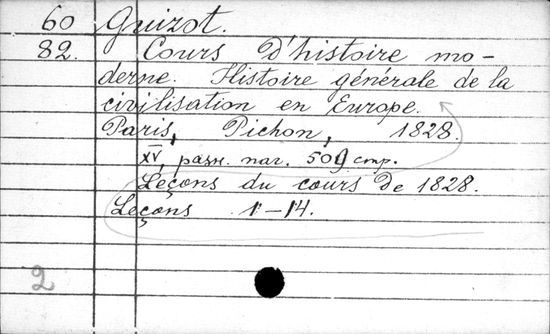 60 Guizot.
82. Cours d'histoire mo-
derne. Histoire générale de la
civilisation en Europe.
Paris, Pichon, 1828.
XV, разн. наг. 509 стр.
Leçons du cours de 1828.
Leçons 1-14.
2